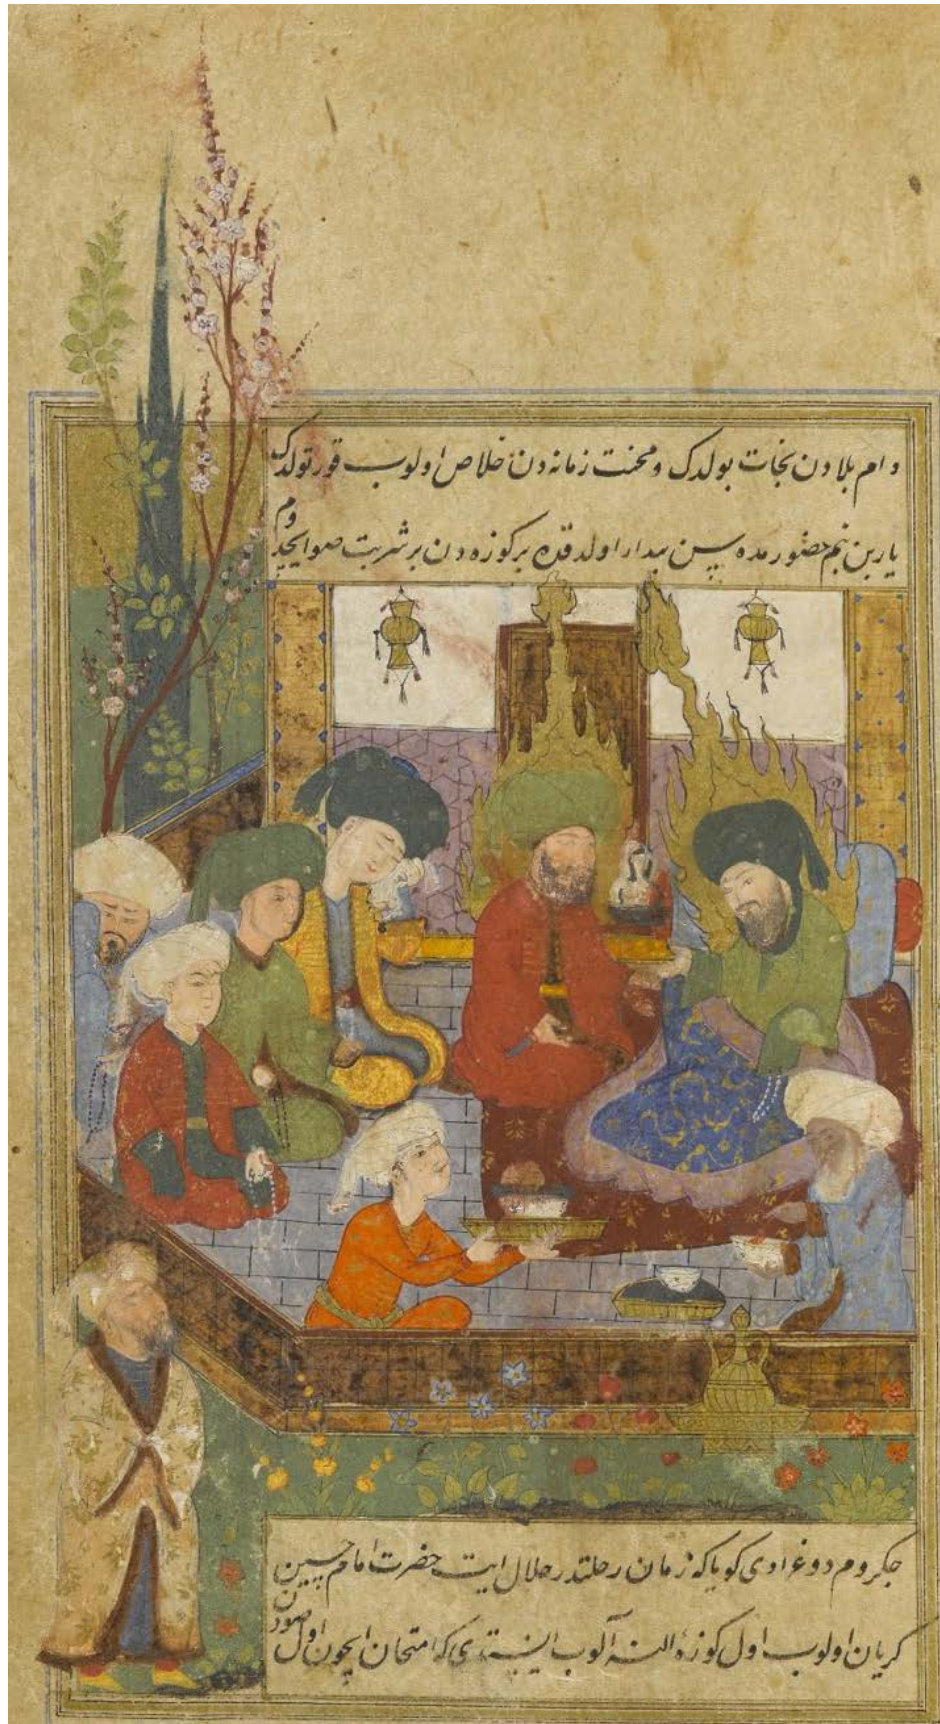 دام بلا دن نجات بولدك و محنت زمانه دن خلاص اولوب قورتولدك
یارین بنم حضورمده سن بیدار اولدقده بر کوزه دن بر شربت صو ایچدم
جکروم دوغرادی کویا که زمان رحلتدر حلال ایت حضرت امام حسین
کریان اولوب اول کوزۀ النه آلوب ایستدی که امتحان ایچون اول صودن